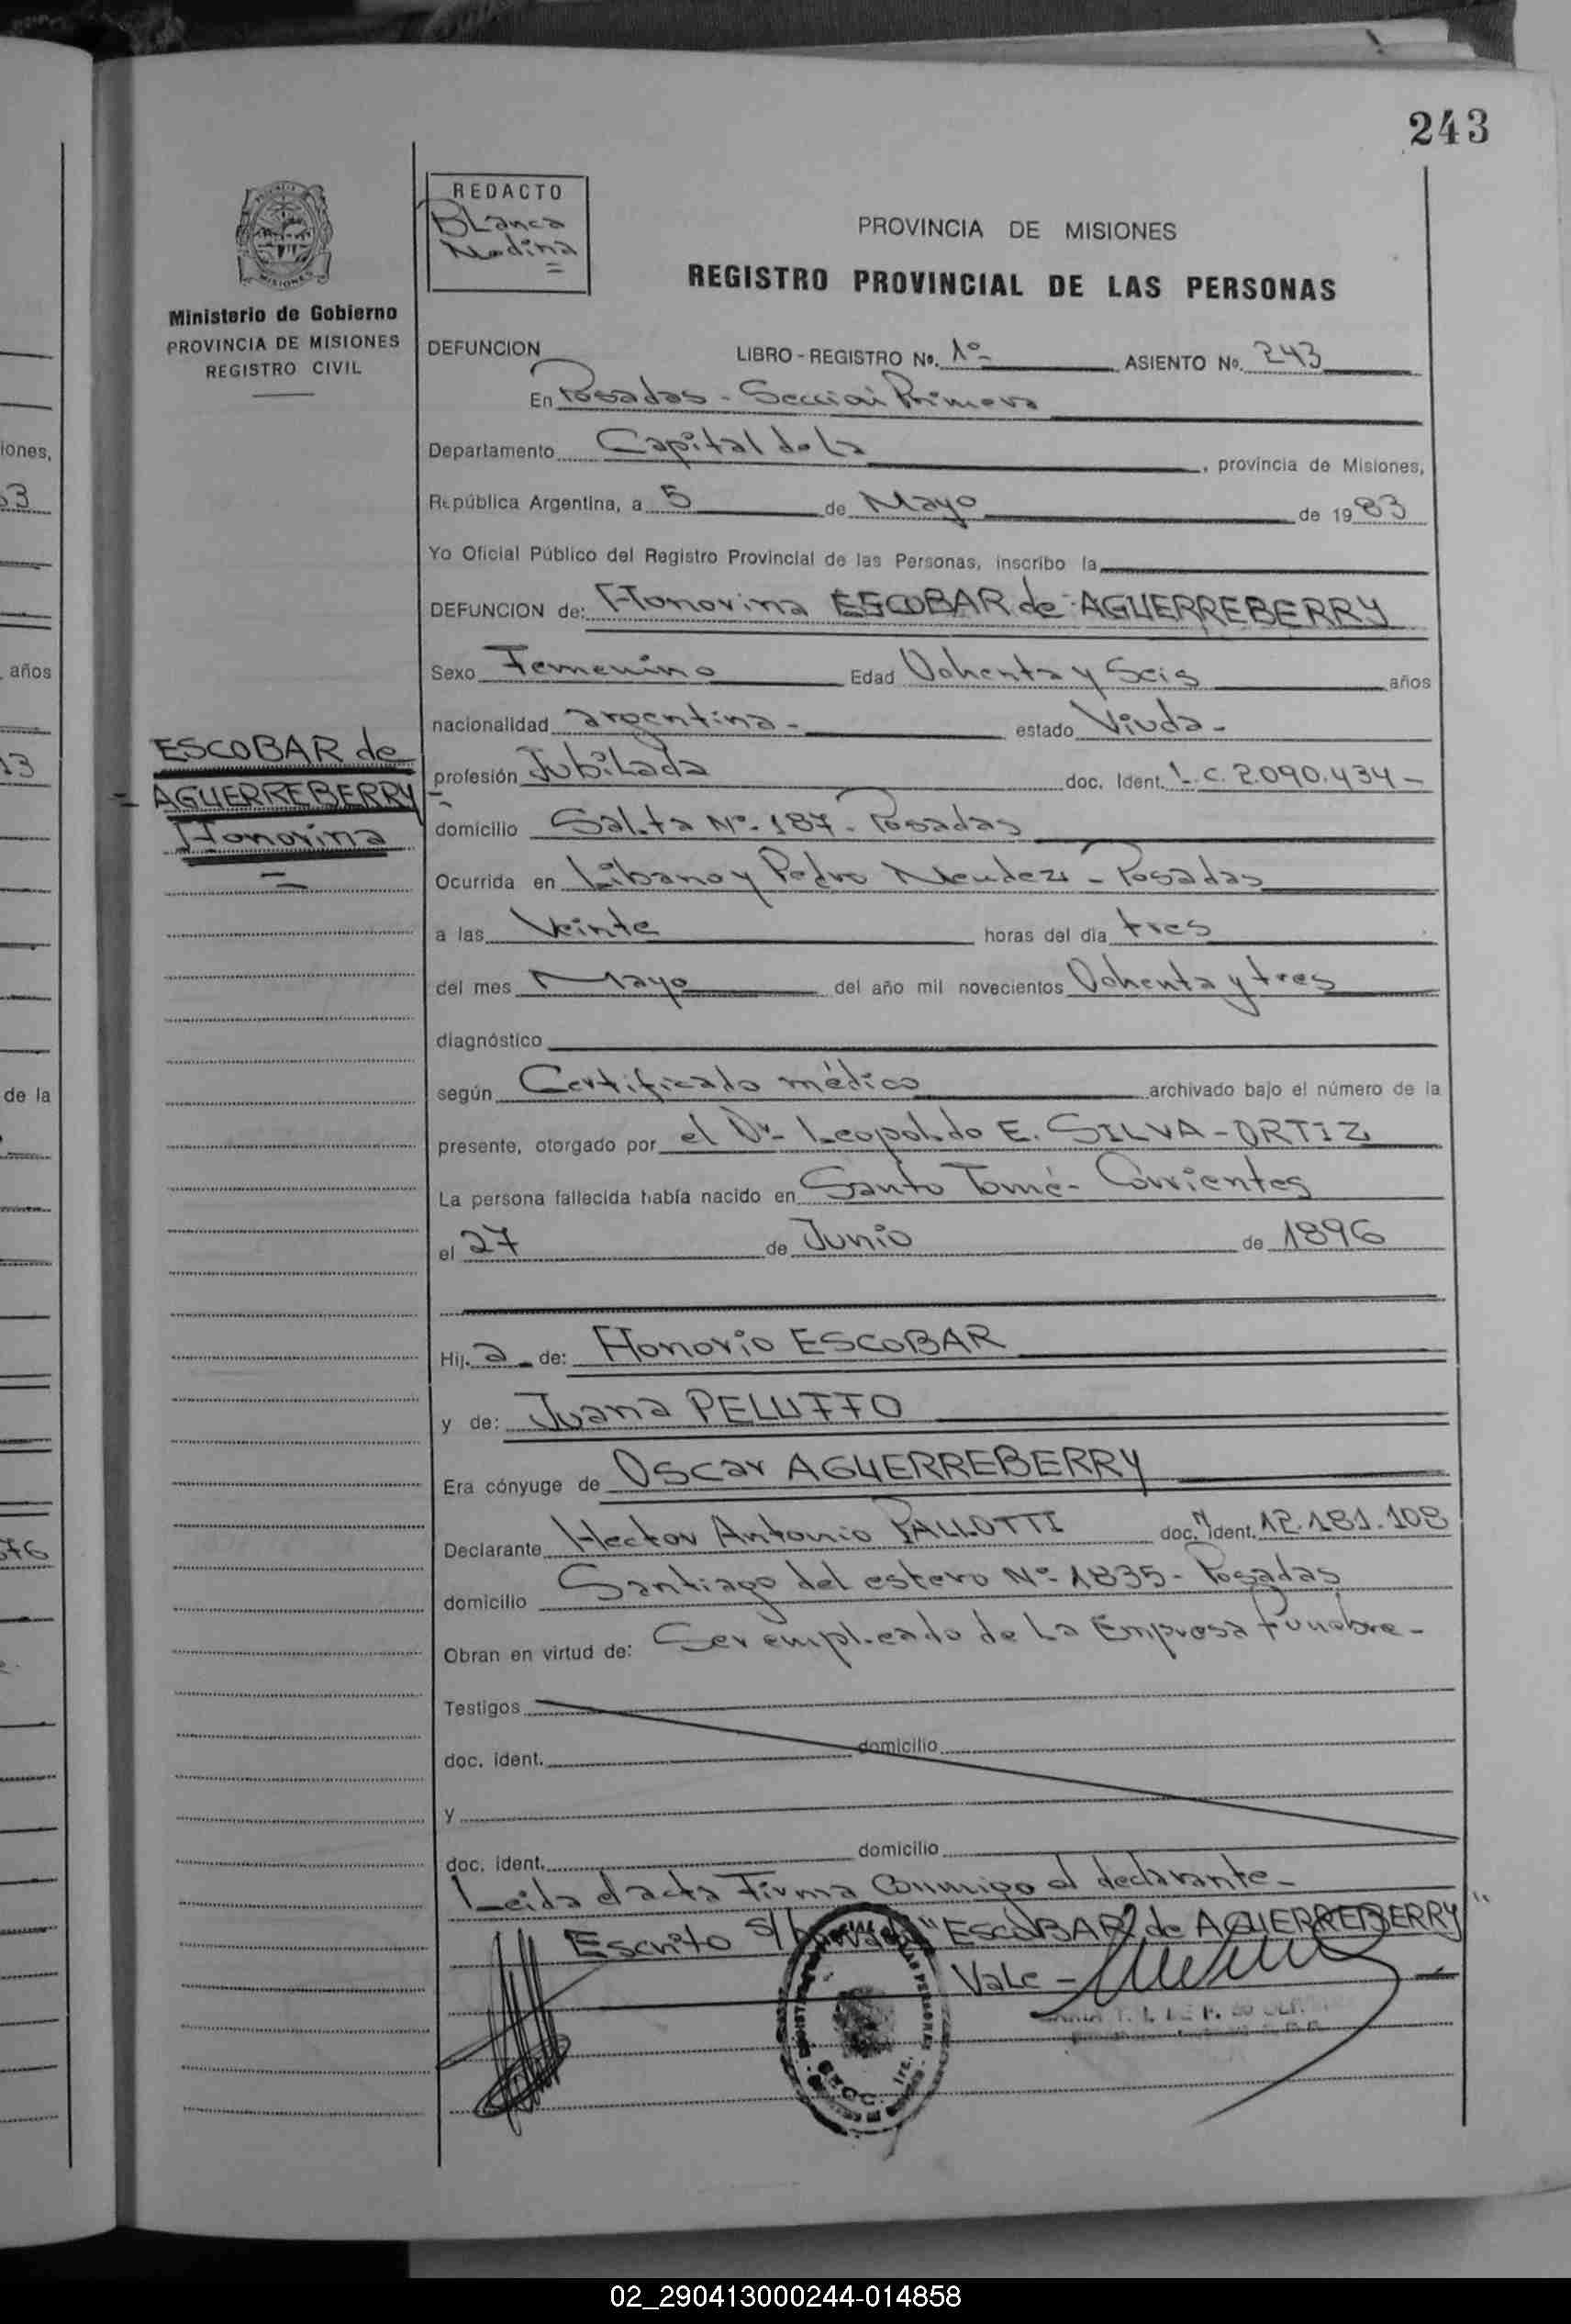 243
REDACTO
Blanca
Medina
PROVINCIA DE MISIONES
REGISTRO PROVINCIAL DE LAS PERSONAS
Ministerio de Gobierno
PROVINCIA DE MISIONES
REGISTRO CIVIL
DEFUNCION LIBRO - REGISTRO No. 1º ASIENTO No. 243
En Posadas - Sección Primera
Departamento Capital de la, provincia de Misiones,
República Argentina, a 5 de Mayo de 1983
Yo Oficial Público del Registro Provincial de las Personas, inscribo la
DEFUNCION de: Honorina ESCOBAR de AGUERREBERRY
Sexo Femenino Edad Ochenta y Seis años
nacionalidad argentina - estado Viuda -
ESCOBAR de
AGUERREBERRY
Honorina
profesión Jubilada doc. Ident. L.C. 2.090.434 -
domicilio Salta Nº 187 - Posadas
Ocurrida en Libano y Pedro Mendez - Posadas
a las Veinte horas del día tres
del mes Mayo del año mil novecientos Ochenta y tres
diagnóstico
según Certificado médico archivado bajo el número de la
presente, otorgado por el Dr. Leopoldo E. SILVA - ORTIZ
La persona fallecida había nacido en Santo Tomé - Corrientes
el 27 de Junio de 1896
Hij a de: Honorio ESCOBAR
y de: Juana PELUFFO
Era cónyuge de Oscar AGUERREBERRY
Declarante Hector Antonio PALLOTTI doc. Ident. 12.181.108
domicilio Santiago del estero Nº 1835 - Posadas
Obran en virtud de: Ser empleado de la Empresa funebre -
Testigos
doc. ident. domicilio
y
doc. ident. domicilio
Leida el acta Firma Conmigo el declarante -
Escrito s/ "ESCOBAR de AGUERREBERRY"
Vale -
iones,
años
de la
02_290413000244-014858